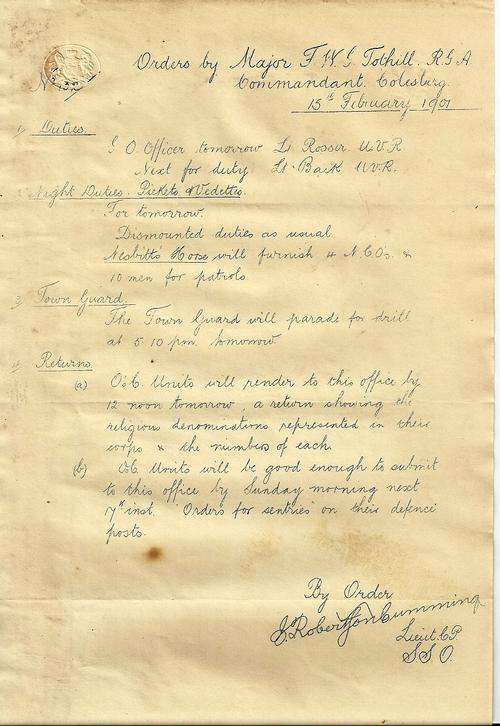 Orders by Major F W G Tothill. R G A
Commandant. Colesburg.
15th February 1901
1/ Duties.
G O. Officer tomorrow Lt Rosser U.V.R
Next for duty Lt Back U.V.R.
Night Duties. Pickets & Vedettes.
For tomorrow.
Dismounted duties as usual
Nesbitt's Horse will furnish 4 N.C.Os. &
10 men for patrols.
3/ Town Guard.
The Town Guard will parade for drill
at 5 10 p.m. tomorrow
4/ Returns
(a) O's.C. Units will render to this office by
12 noon tomorrow, a return showing
religious denominations represented in their
corps & the numbers of each.
(b) O.C. Units will be good enough to submit
to this office by Sunday morning next
7th inst. "Orders for sentries" on their defence
posts.
By Order
J. Robertson Cumming
Lieut. C.P.
S.S.O.